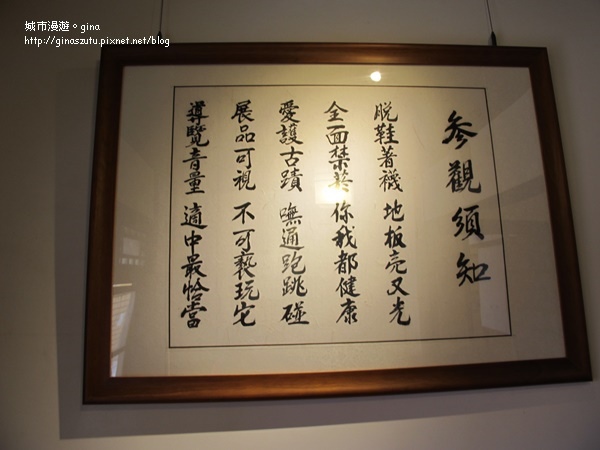 城市漫遊。gina
http://ginaszutu.pixnet.net/blog
参觀須知
脫鞋著襪 地板亮又光
全面禁菸 你我都健康
愛護古蹟 嘸通跑跳碰
展品可視 不可褻玩它
導覽音量 適中最恰當